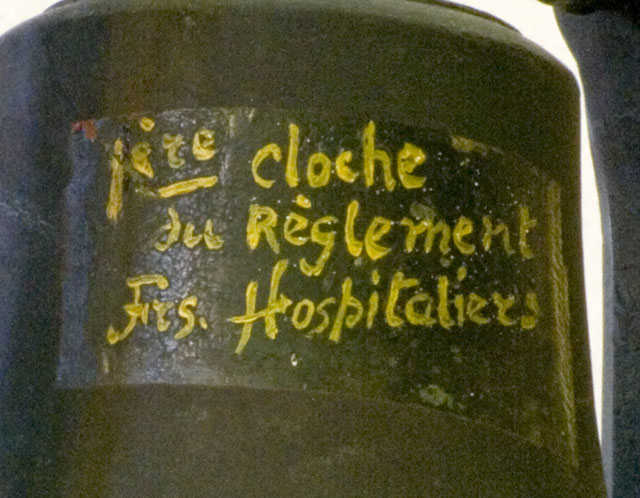 1ère cloche
du Règlement
Frs. Hospitaliers